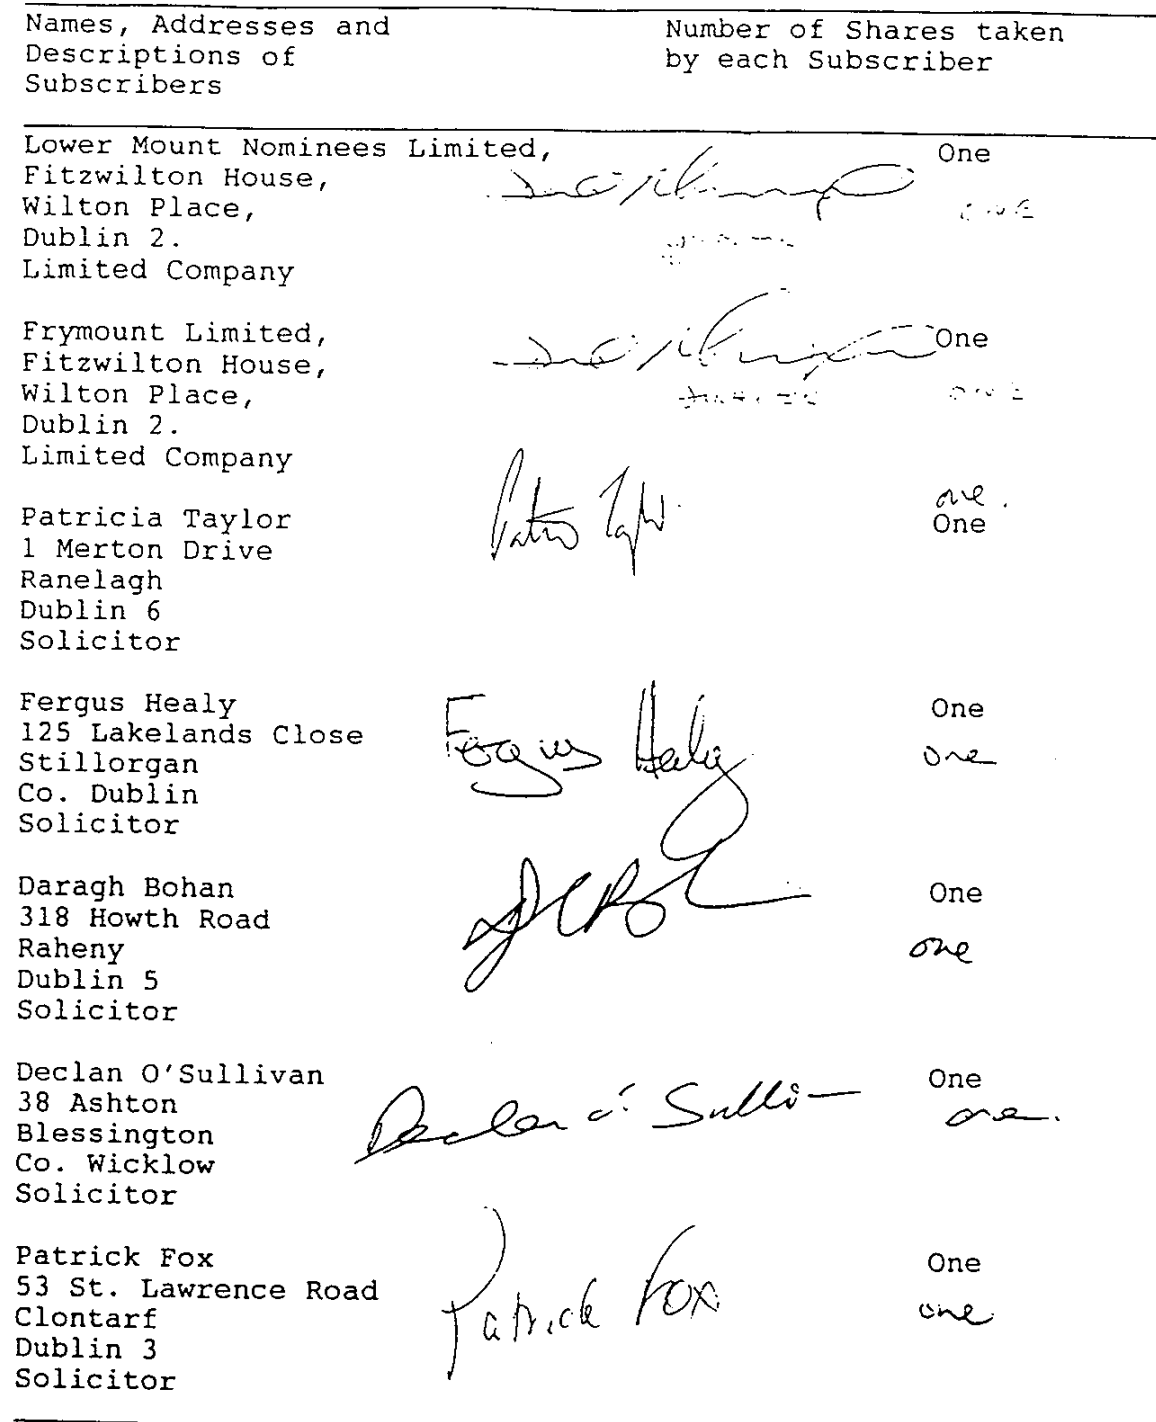 Names, Addresses and
Descriptions of
Subscribers
Number of Shares taken
by each Subscriber
Lower Mount Nominees Limited,
Fitzwilton House,
Wilton Place,
Dublin 2.
Limited Company
One
ONE
Frymount Limited,
Fitzwilton House,
Wilton Place,
Dublin 2.
Limited Company
One
ONE
Patricia Taylor
1 Merton Drive
Ranelagh
Dublin 6
Solicitor
one.
One
Fergus Healy
125 Lakelands Close
Stillorgan
Co. Dublin
Solicitor
Fergus Healy
One
one
Daragh Bohan
318 Howth Road
Raheny
Dublin 5
Solicitor
One
one
Declan O'Sullivan
38 Ashton
Blessington
Co. Wicklow
Solicitor
Declan O'
One
one.
Patrick Fox
53 St. Lawrence Road
Clontarf
Dublin 3
Solicitor
Patrick Fox
One
one